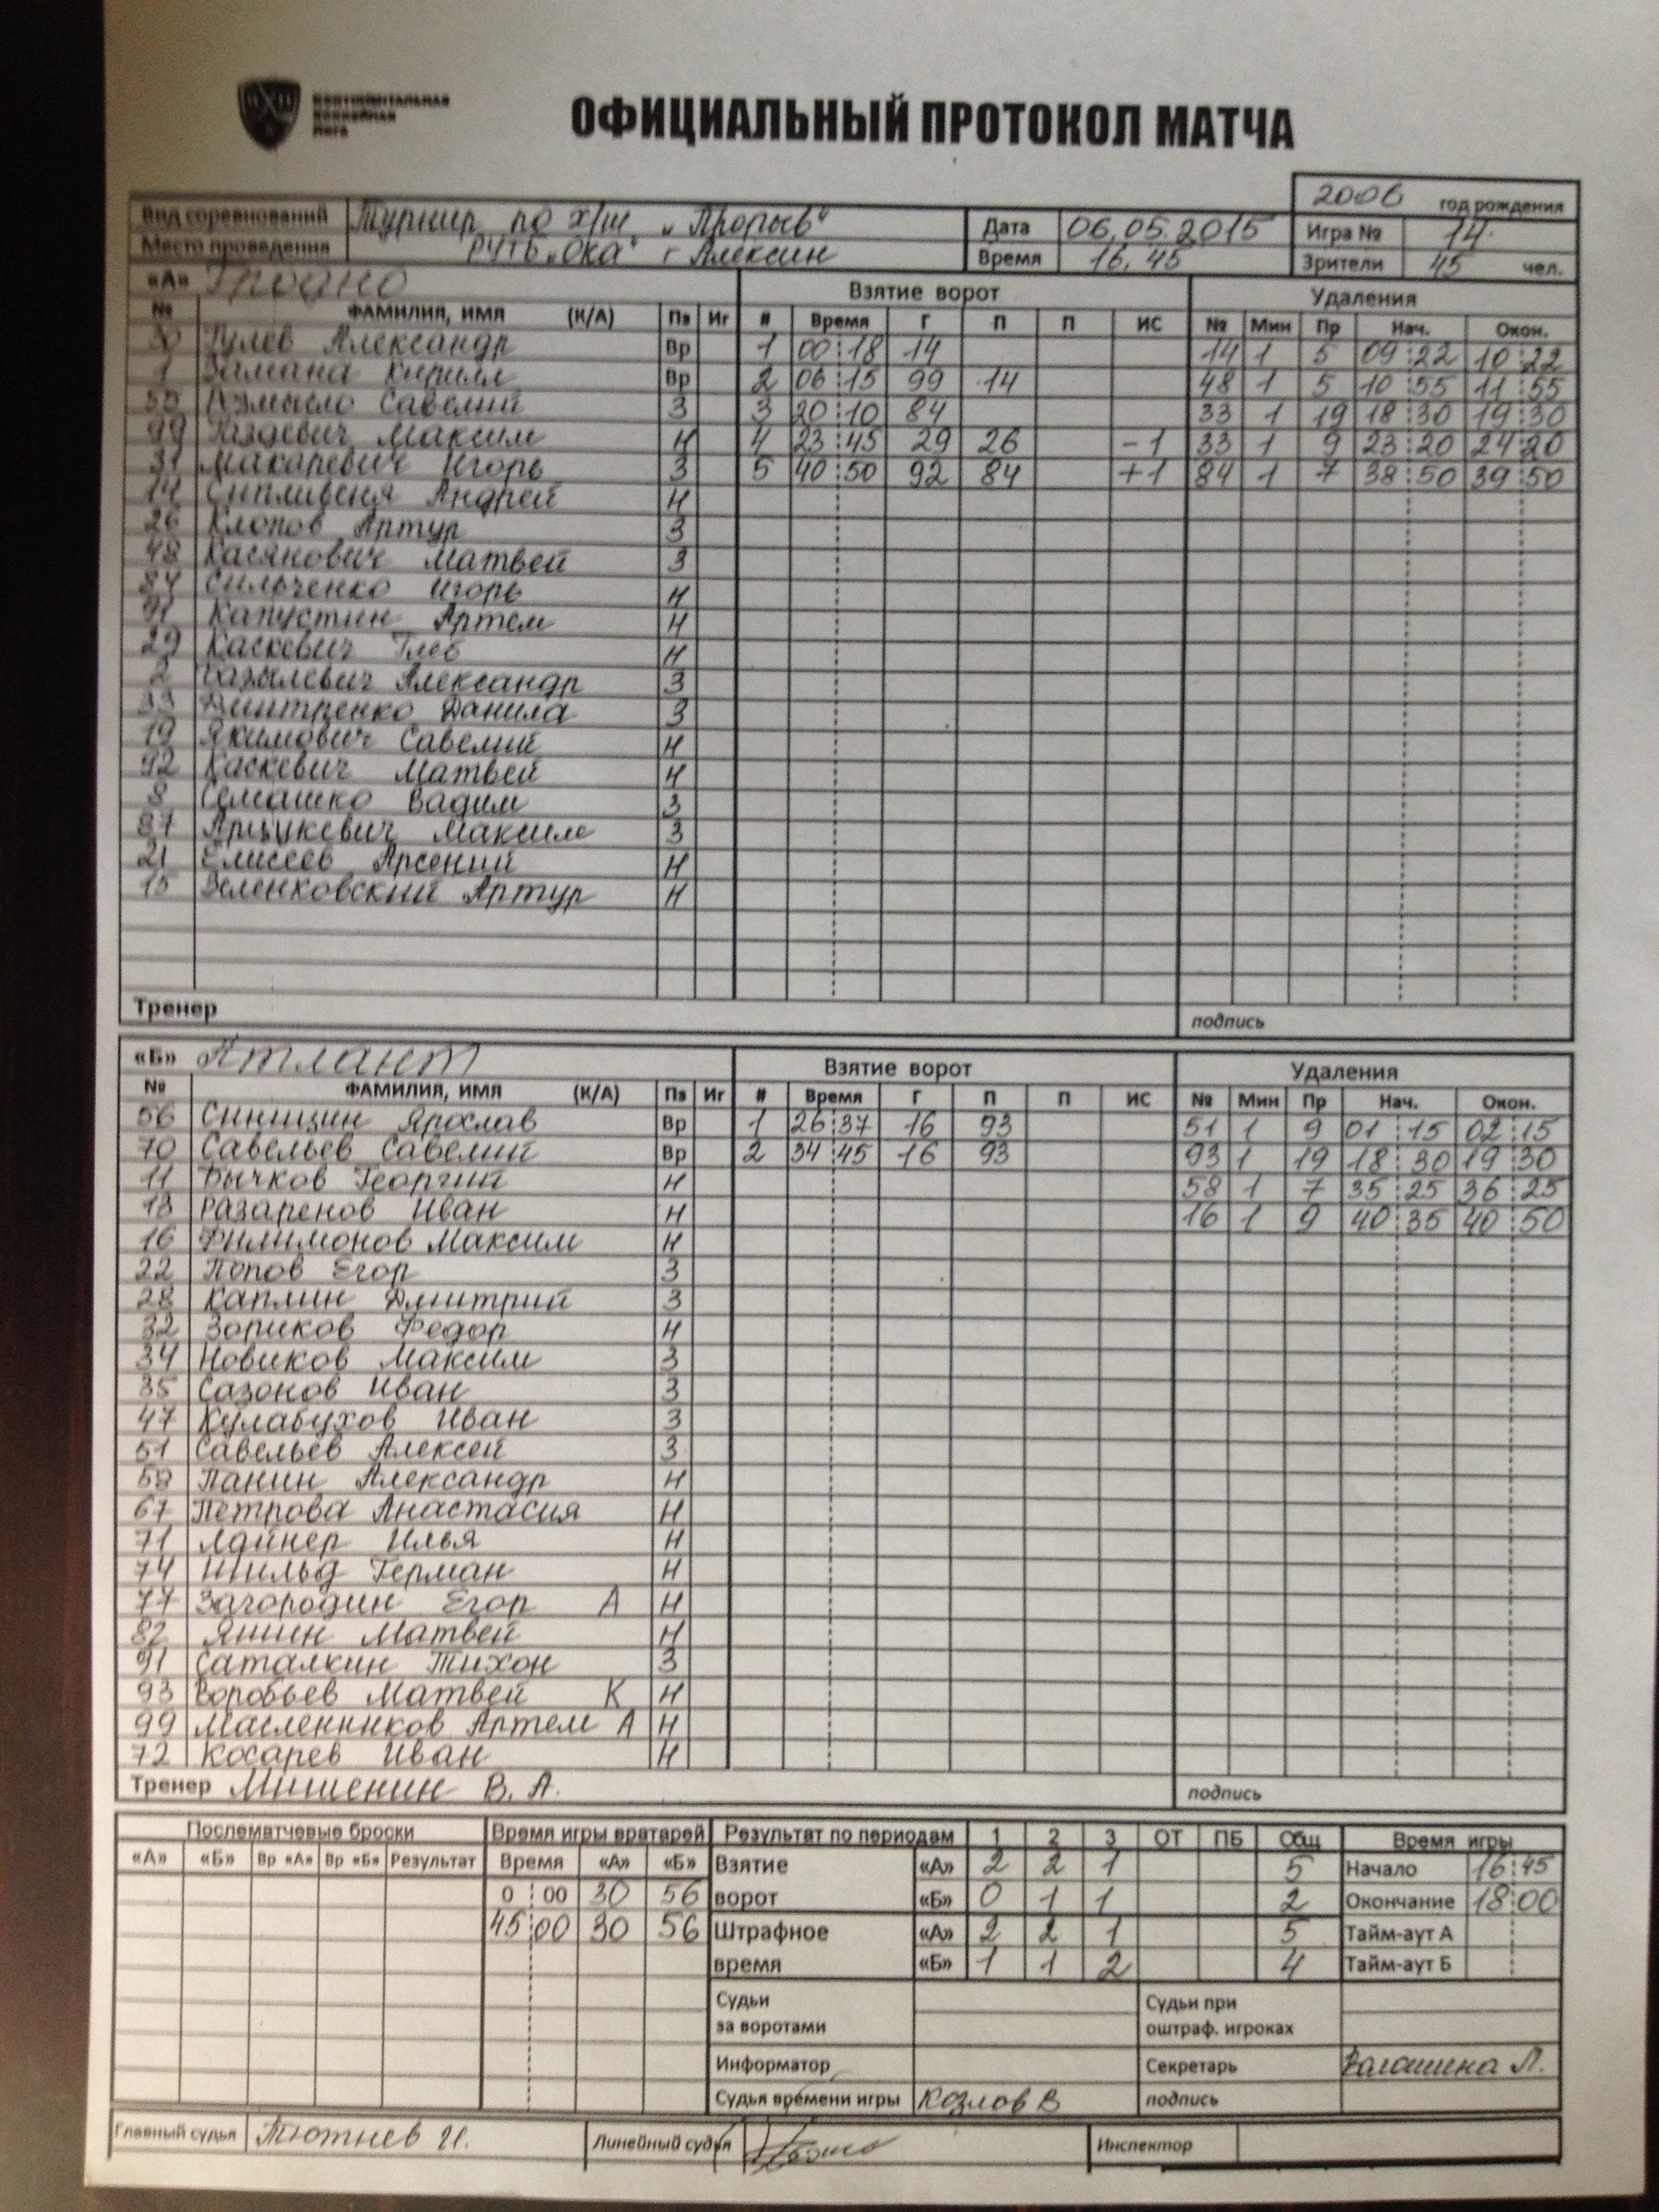 КОНТИНЕНТАЛЬНАЯ
ХОККЕЙНАЯ
ЛИГА
ОФИЦИАЛЬНЫЙ ПРОТОКОЛ МАТЧА
2006 год рождения
Вид соревнований Турнир по х/ш „Прорыв“ Дата 06.05.2015 Игра № 14
Место проведения РУТБ „Ока“ г Алексин Время 16.45 Зрители 45 чел.
«А» Гродно Взятие ворот Удаления
№ ФАМИЛИЯ, ИМЯ (К/А) Пз Иг # Время Г П П ИС № Мин Пр Нач. Окон.
30 Гулев Александр Вр 1 00:18 14 14 1 5 09:22 10:22
1 Замана Кирилл Вр 2 06:15 99 14 48 1 5 10:55 11:55
55 Савелий З 3 20:10 84 33 1 19 18:30 19:30
99 Максим Н 4 23:45 29 26 -1 33 1 9 23:20 24:20
31 Макаревич Игорь З 5 40:50 92 84 +1 84 1 7 38:50 39:50
14 Сипливеня Андрей Н
26 Клопов Артур З
48 Касянович Матвей З
84 Сильченко Игорь Н
91 Капустин Артем Н
29 Каскевич Глеб Н
2 Александр З
33 Дмитренко Данила З
19 Якимович Савелий Н
92 Каскевич Матвей Н
8 Семашко Вадим З
87 Максим З
21 Елисеев Арсений Н
15 Зеленковский Артур Н
Тренер подпись
«Б» Атлант Взятие ворот Удаления
№ ФАМИЛИЯ, ИМЯ (К/А) Пз Иг # Время Г П П ИС № Мин Пр Нач. Окон.
56 Синицин Ярослав Вр 1 26:37 16 93 51 1 9 01:15 02:15
70 Савельев Савелий Вр 2 34:45 16 93 93 1 19 18:30 19:30
11 Бычков Георгий Н 58 1 7 35:25 36:25
13 Разаренов Иван Н 16 1 9 40:35 40:50
16 Филимонов Максим Н
22 Попов Егор З
28 Каплин Дмитрий З
32 Зориков Федор Н
34 Новиков Максим З
35 Сазонов Иван З
47 Кулабухов Иван З
51 Савельев Алексей З
58 Панин Александр Н
67 Петрова Анастасия Н
71 Лайнер Илья Н
74 Шильд Герман Н
77 Загородин Егор А Н
82 Янин Матвей Н
91 Саталкин Тихон З
93 Воробьев Матвей К Н
99 Масленников Артем А Н
72 Косарев Иван Н
Тренер Мишенин В. А. подпись
Послематчевые броски Время игры вратарей Результат по периодам 1 2 3 ОТ ПБ Общ Время игры
«А» «Б» Вр «А» Вр «Б» Результат Время «А» «Б» Взятие «А» 2 2 1 5 Начало 16:45
0:00 30 56 ворот «Б» 0 1 1 2 Окончание 18:00
45:00 30 56 Штрафное «А» 2 2 1 5 Тайм-аут А
время «Б» 1 1 2 4 Тайм-аут Б
Судьи Судьи при
за воротами оштраф. игроках
Информатор Секретарь Л.
Судья времени игры Козлов В подпись
Главный судья Тютнев И. Линейный судья Инспектор